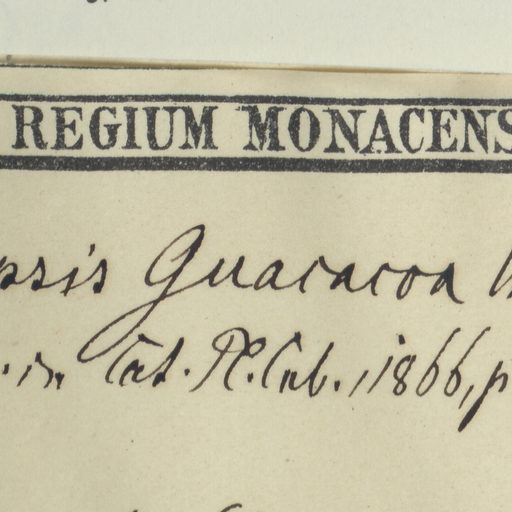 REGIUM MONACENS
psis Guacacoa
in Cat. Pl. Cub., 1866, p